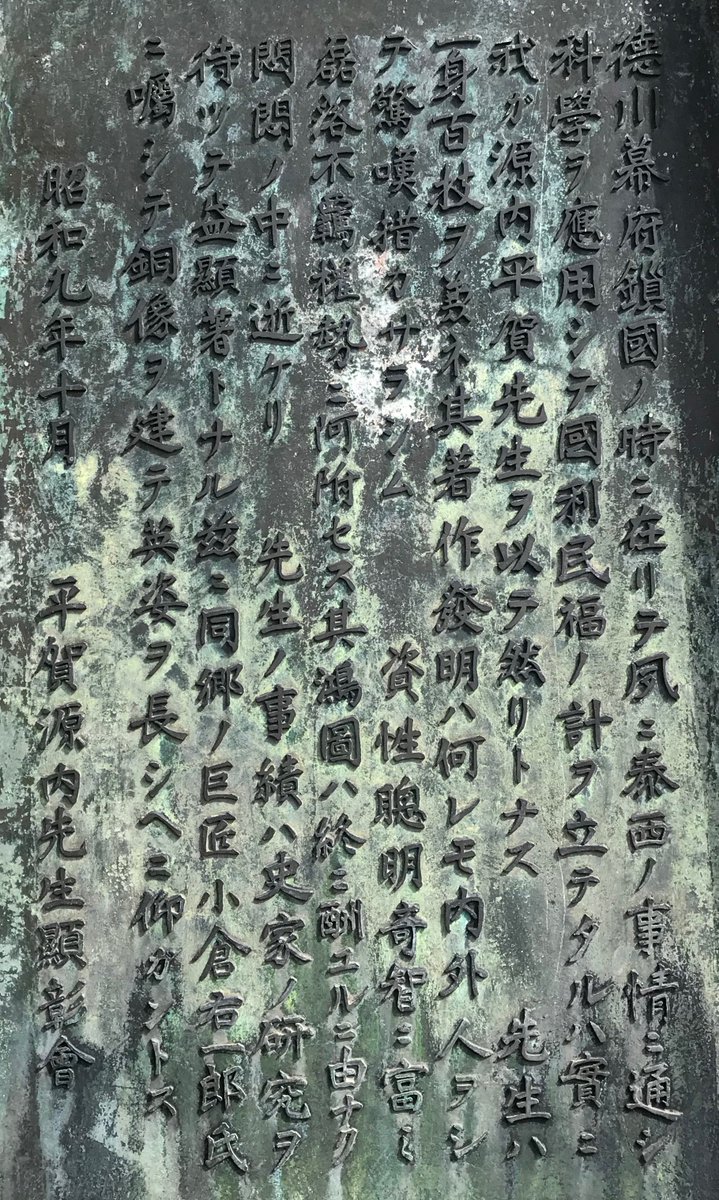 徳川幕府鎖國ノ時ニ在リテ夙ニ泰西ノ事情ニ通シ
科學ヲ應用シテ國利民福ノ計ヲ立テタルハ實ニ
我ガ源内平賀先生ヲ以テ然リトナス　先生ハ
一身百技ヲ兼ネ其著作發明ハ何レモ内外人ヲシ
テ驚嘆措カサラシム　資性聰明奇智ニ富ミ
磊落不羈權勢ニ阿附セス其鴻圖ハ終ニ酬エルニ由ナク
悶悶ノ中ニ逝ケリ　先生ノ事績ハ史家ノ研究ヲ
待ツテ益顯著トナル茲ニ同郷ノ巨匠小倉右一郎氏
ニ囑シテ銅像ヲ建テ英姿ヲ長シヘニ仰ガントス
昭和九年十月　平賀源内先生顯彰會